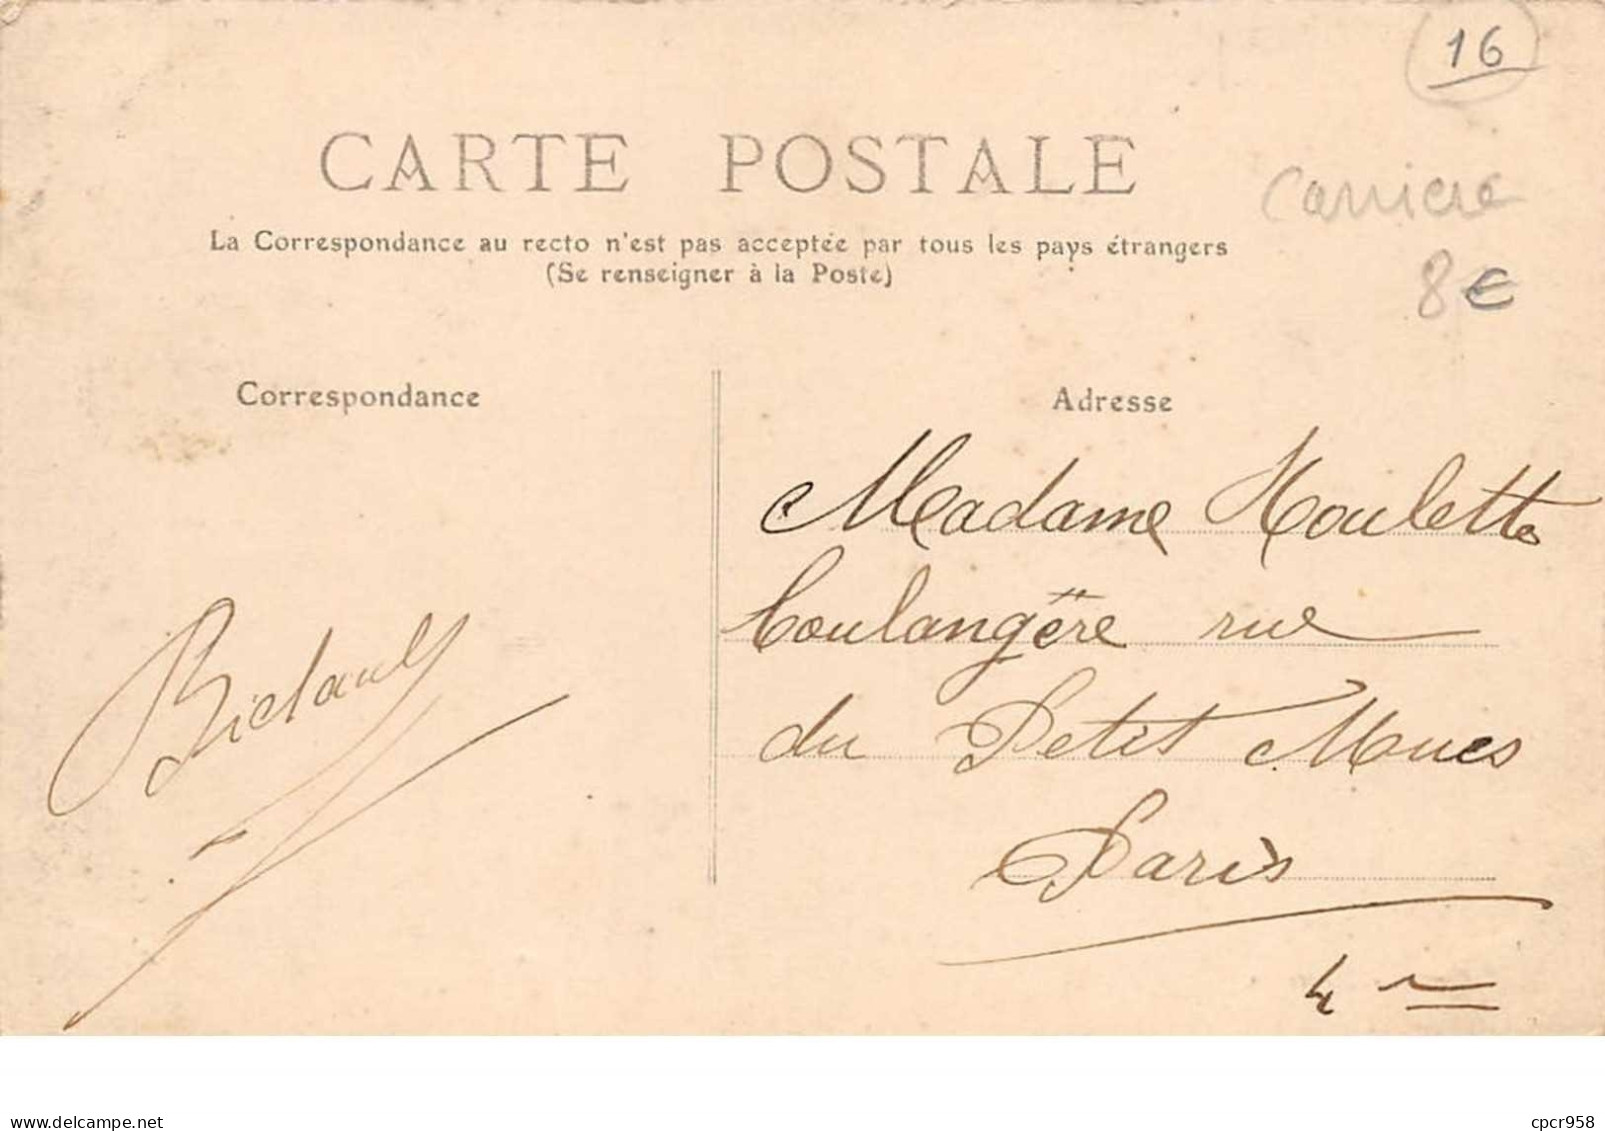 16
CARTE POSTALE
carriere
La Correspondance au recto n'est pas acceptée par tous les pays étrangers
(Se renseigner à la Poste)
8€
Correspondance
Adresse
Madame Houlette
boulangère rue
du Petit Mues
Paris
4
www.delcampe.net
cpcr958